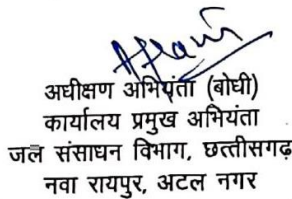 अधीक्षण अभियंता (बोधी)
कार्यालय प्रमुख अभियंता
जल संसाधन विभाग, छत्तीसगढ़
नवा रायपुर, अटल नगर